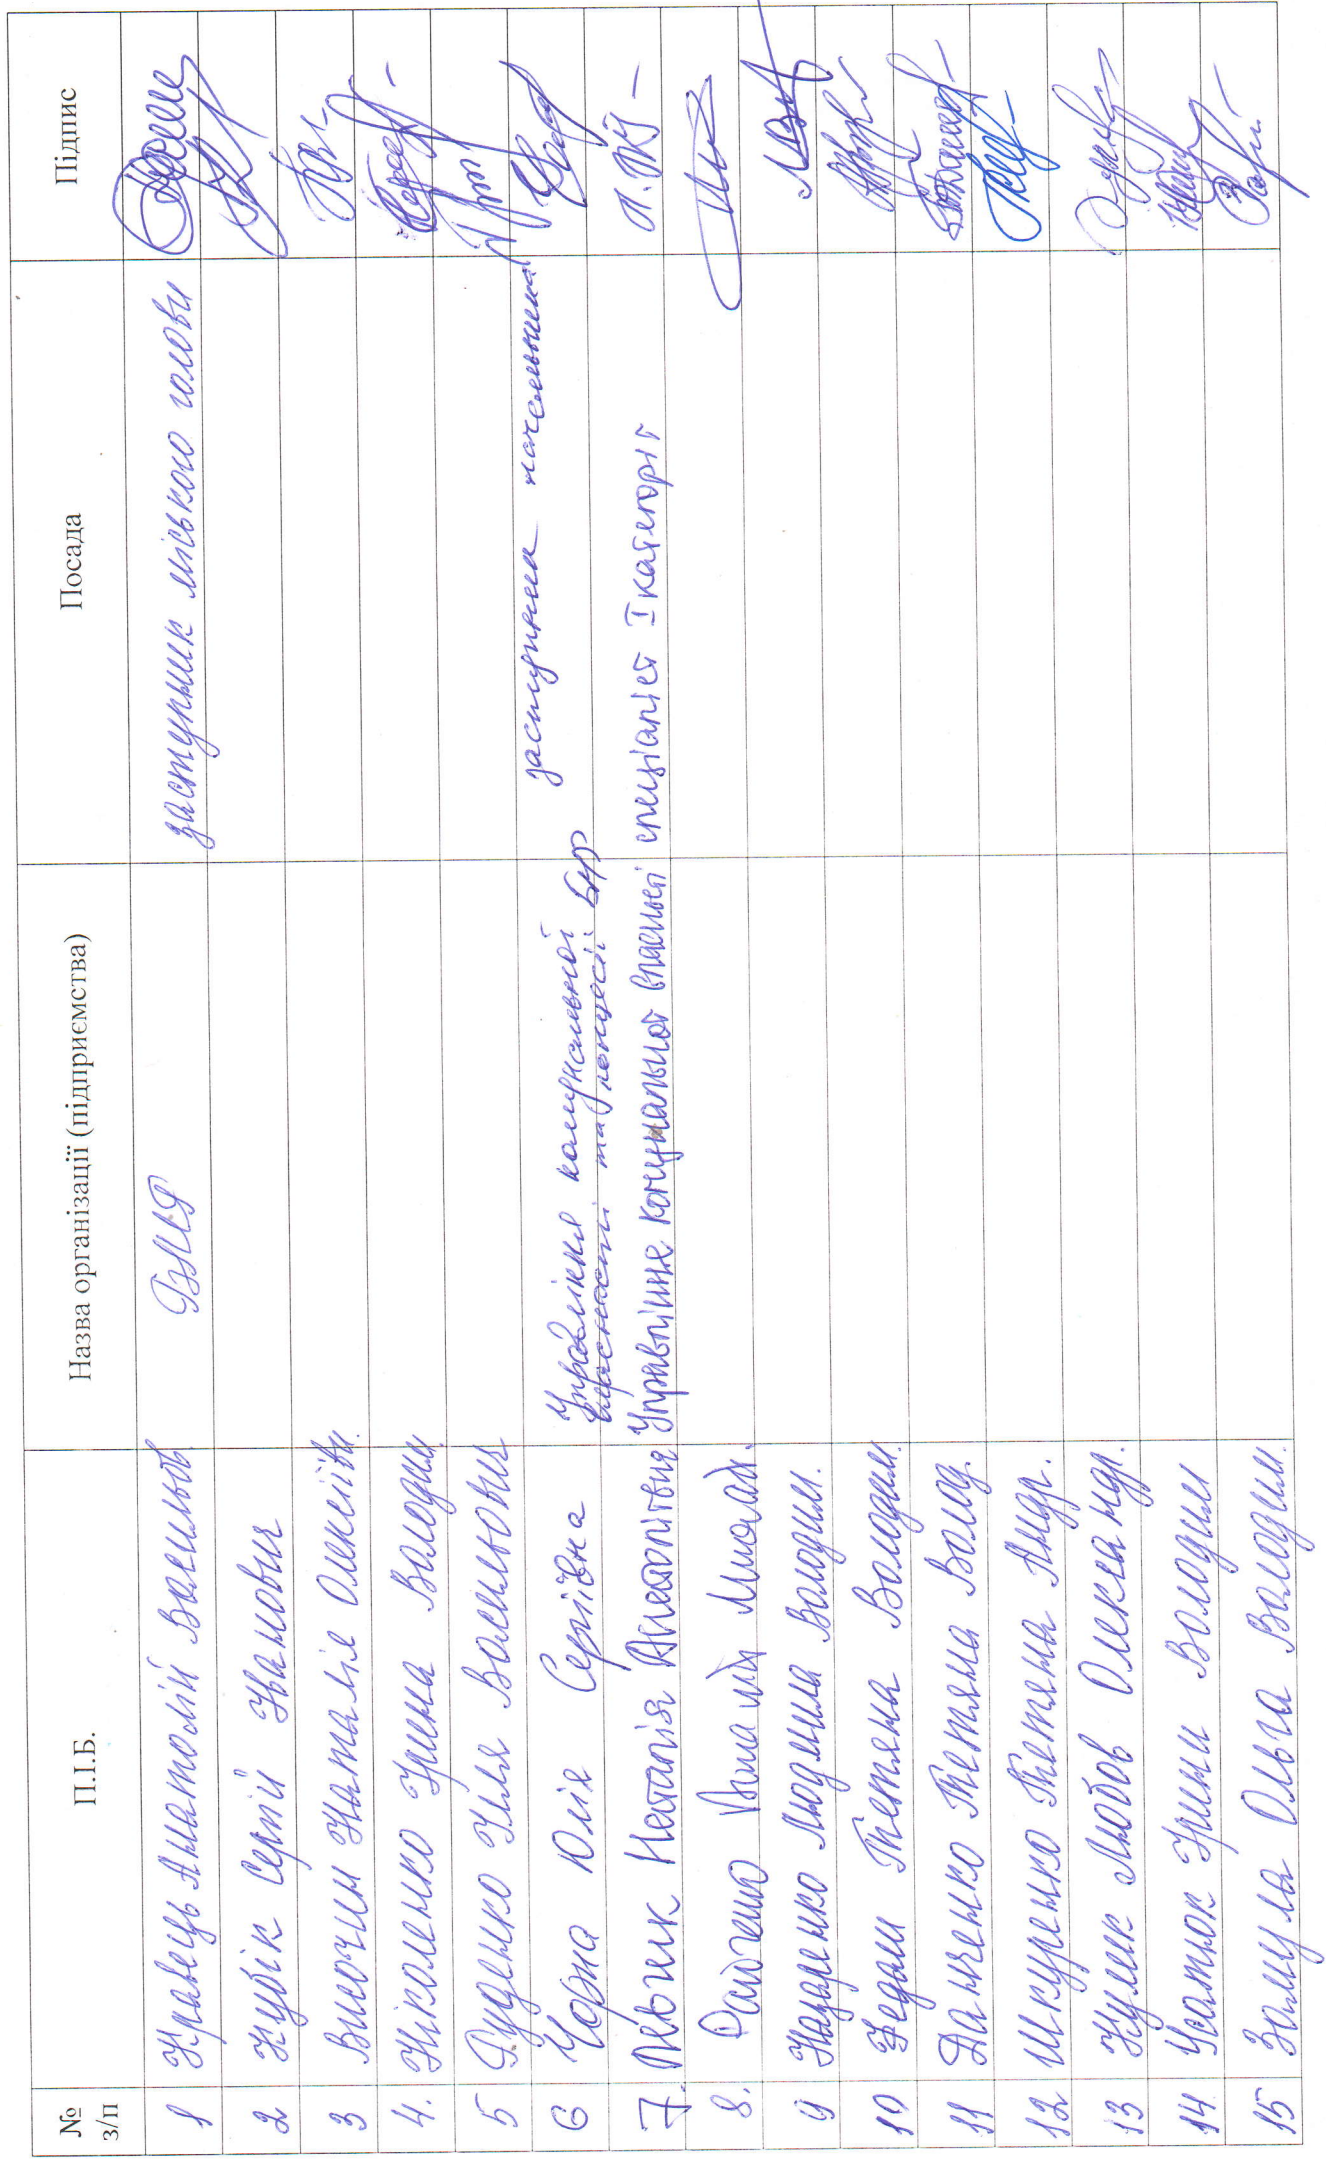 № з/п П.І.Б. Назва організації (підприємства) Посада Підпис
1 Кравець Анатолій Васильов. заступник міського голови
2 Кубік Сергій Іванович
3 Височин Наталія Олексіївн.
4. Ніколенко Ірина Володим.
5 Руденко Ілля Васильович
6 Чорна Юлія Сергіївна Управління комунальної власності та концесії БМР заступник начальника
7. Левчик Наталія Анатоліївна Управління комунальної власності спеціаліст І категорії
8. Радченко
9 Назаренко Людмила Володим.
10 Тетяна Володим.
11 Данченко Тетяна Волод.
12 Шкуренко Тетяна Андр.
13 Кулик Любов Олександр.
14 Ірина Володим
15 Ольга Володим.